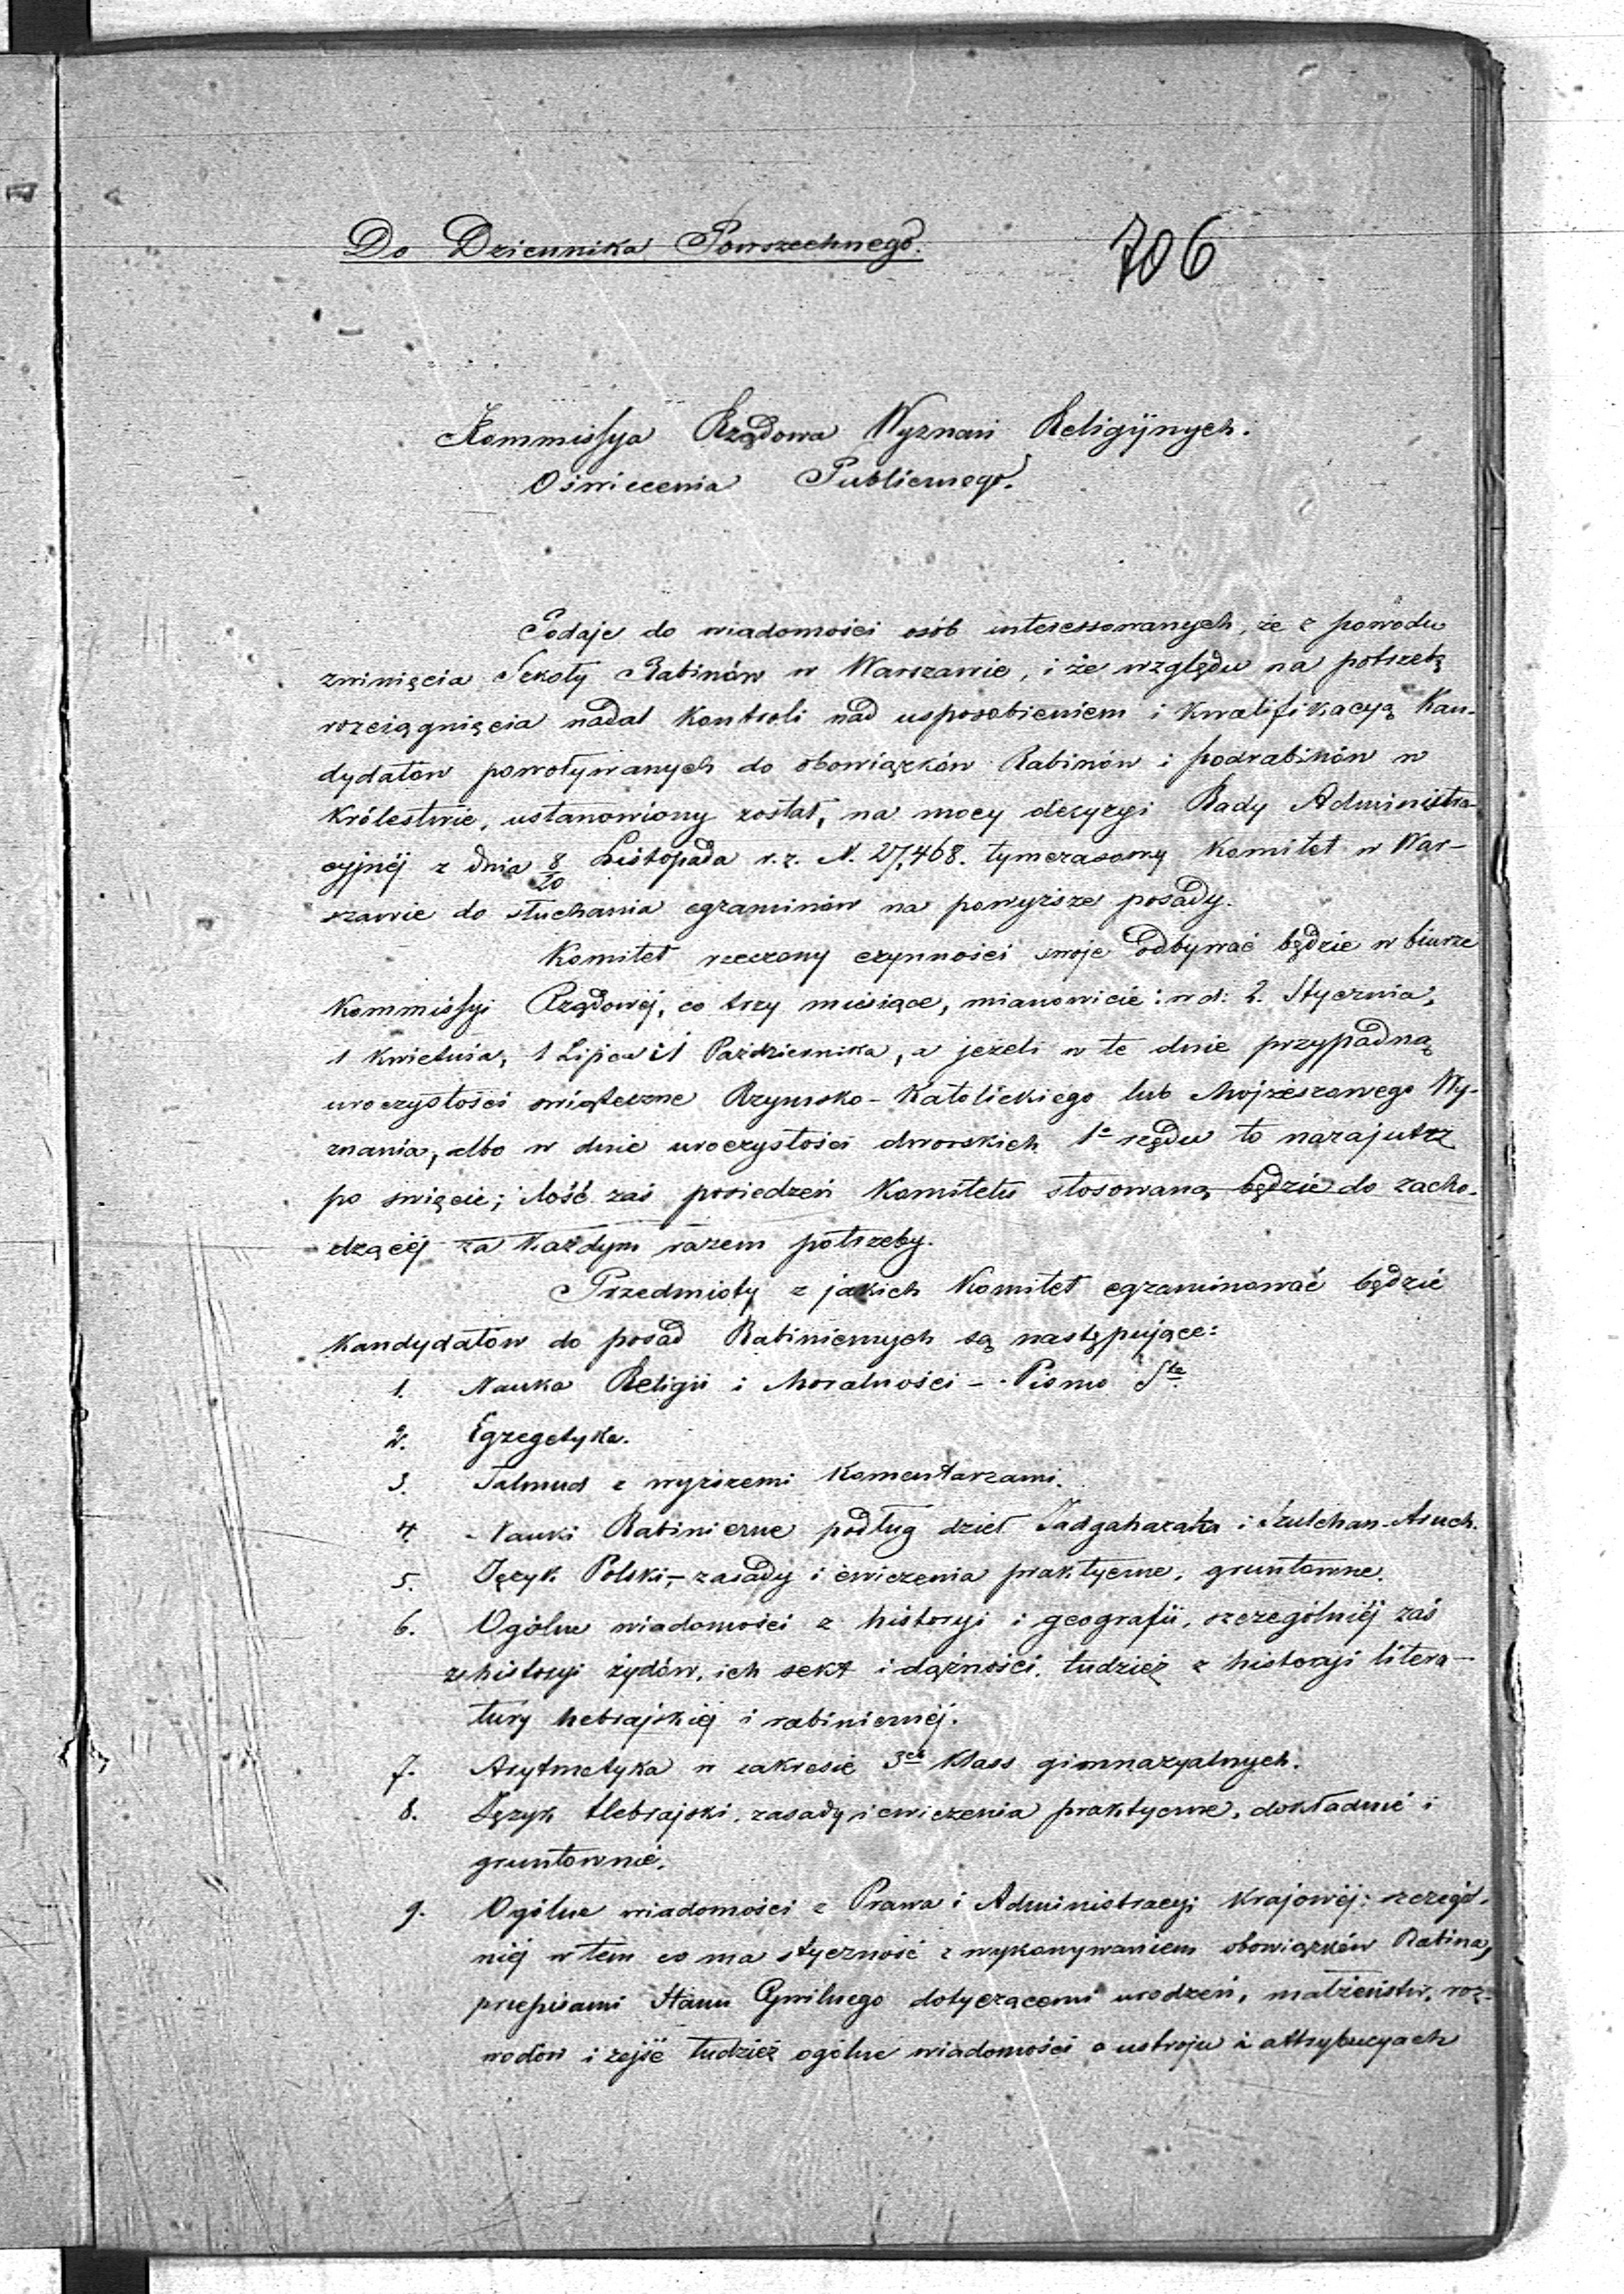 Do Dziennika Powszechnego.
706
Kommissya Rządowa Wyznań Religijnych.
Oświecenia Publicznego.
Podaje do wiadomości osób interessowanych, że z powodu
zwinięcia Szkoły Rabinów w Warszawie, i że względu na potrzebę
rozciągnięcia nadal kontroli nad usposobieniem i kwalifikacyą Kan-
dydatów powoływanych do obowiązków Rabinów i podrabinów w
Królestwie, ustanowiony został, na mocy decyzyi Rady Administra-
cyjnéj z dnia 8/20 Listopada r. z. N. 27,468. tymczasowy Komitet w War-
szawie do słuchania egzaminów na powyższe posady.
Komitet rzeczony czynności swoje odbywać będzie w biurze
Kommissyi Rządowéj, co trzy miesiące, mianowicie: w d: 2. Stycznia,
1 Kwietnia, 1 Lipca i 1 Października, a jeżeli w te dnie przypadną
uroczystości świąteczne Rzymsko-Katolickiego lub Mojżeszowego Wy-
znania, albo w dnie uroczystości dworskich 1e rzędu to nazajutrz
po święcie; ilość zaś posiedzeń Komitetu stosowaną będzie do zacho-
dzącéj za każdym razem potrzeby.
Przedmioty z jakich Komitet egzaminować będzie
kandydatów do posad Rabinicznych są następujące:
1. Nauka Religii i Moralności - Pismo Ste
2. Egzegetyka.
3. Talmud z wyższemi Komentarzami.
4. Nauki Rabiniczne podług dzieł Jadgahazaka i Szulchan-Aruch.
5. Język Polski, - zasady i ćwiczenia praktyczne, gruntowne.
6. Ogólne wiadomości z historyi i geografii, szczególniéj zaś
z historyi żydów, ich sekt i dążności, tudzież z historyi litera-
tury hebrajskiéj i rabinicznéj.
7. Arytmetyka w zakresie 3ch klass gimnazyalnych.
8. Język Hebrajski, zasady i ćwiczenia praktyczne, dokładnie i
gruntownie.
9. Ogólne wiadomości z Prawa i Administracyi Krajowéj: szczegól-
niéj w tem co ma styczność z wykonywaniem obowiązków Rabina,
przepisami Stanu Cywilnego dotyczącemi urodzeń, małżeństw, roz-
wodów i zejść tudzież ogólne wiadomości o ustroju i attrybucyach